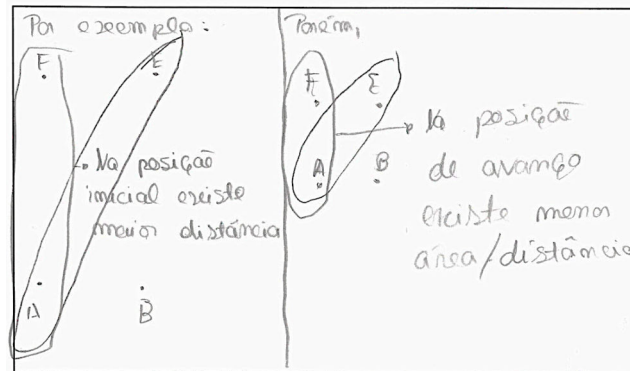 Por exemplo:
F
E
Na posição
inicial existe
maior distância
A
B
Porém,
F
E
A
B
Na posição
de avanço
existe menor
área/distância